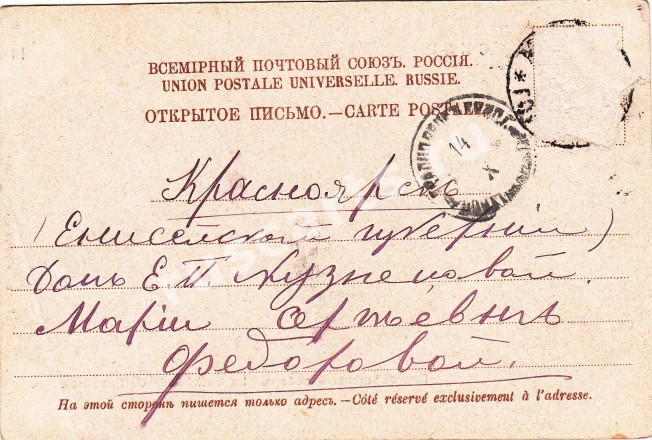 ВСЕМІРНЫЙ ПОЧТОВЫЙ СОЮЗЪ. РОССІЯ.
UNION POSTALE UNIVERSELLE. RUSSIE.
ОТКРЫТОЕ ПИСЬМО.—CARTE POSTALE
14
X
Красноярскъ
(Енисейской губерніи)
Домъ Е. П. Кузнецовой.
Маріи Сергѣевнѣ
Федоровой.
На этой сторонѣ пишется только адресъ.—Côté réservé exclusivement à l'adresse.